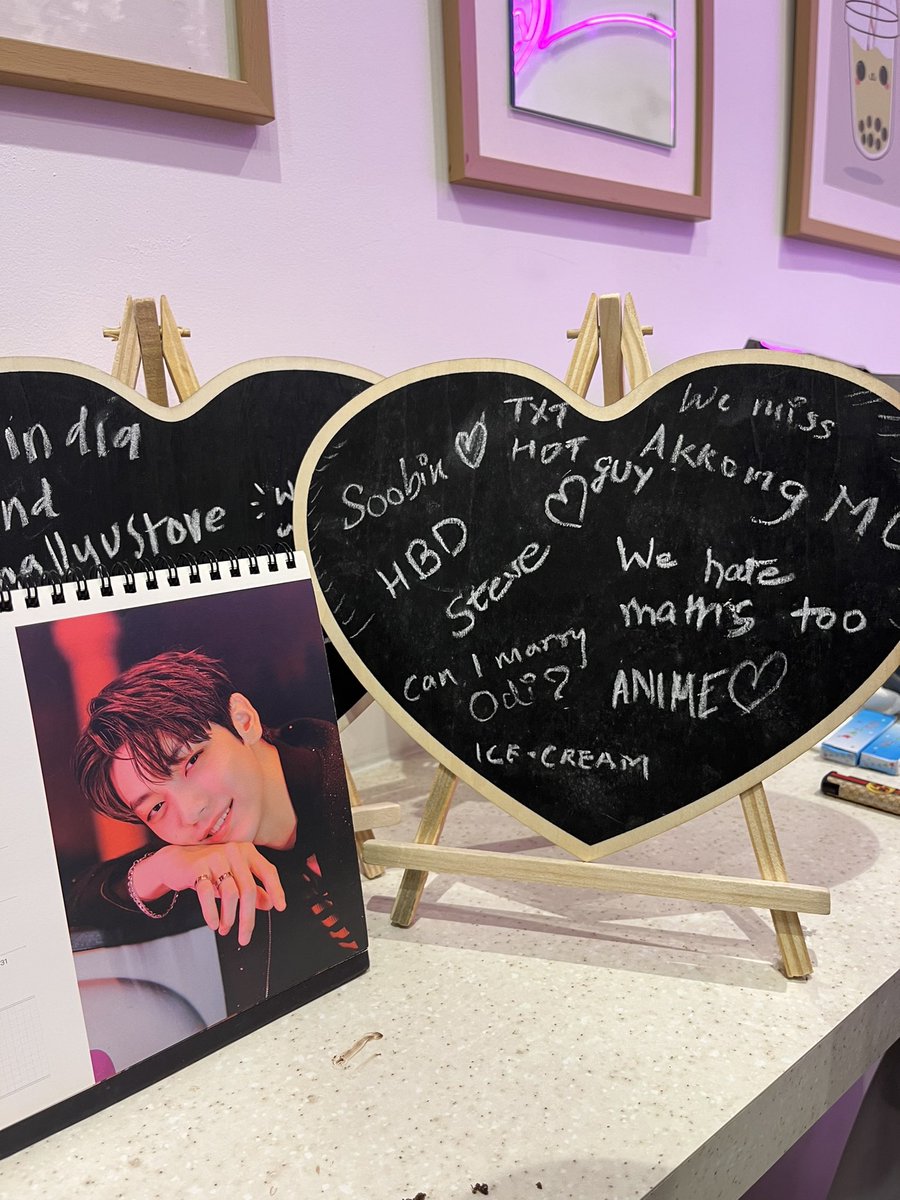 india
nd
nallyuvstore
Soobin
TXT
HOT
guy
We miss
Akkomg
HBD
Steve
We hate
maths too
can I marry
Odi?
ANIME
ICE-CREAM
31